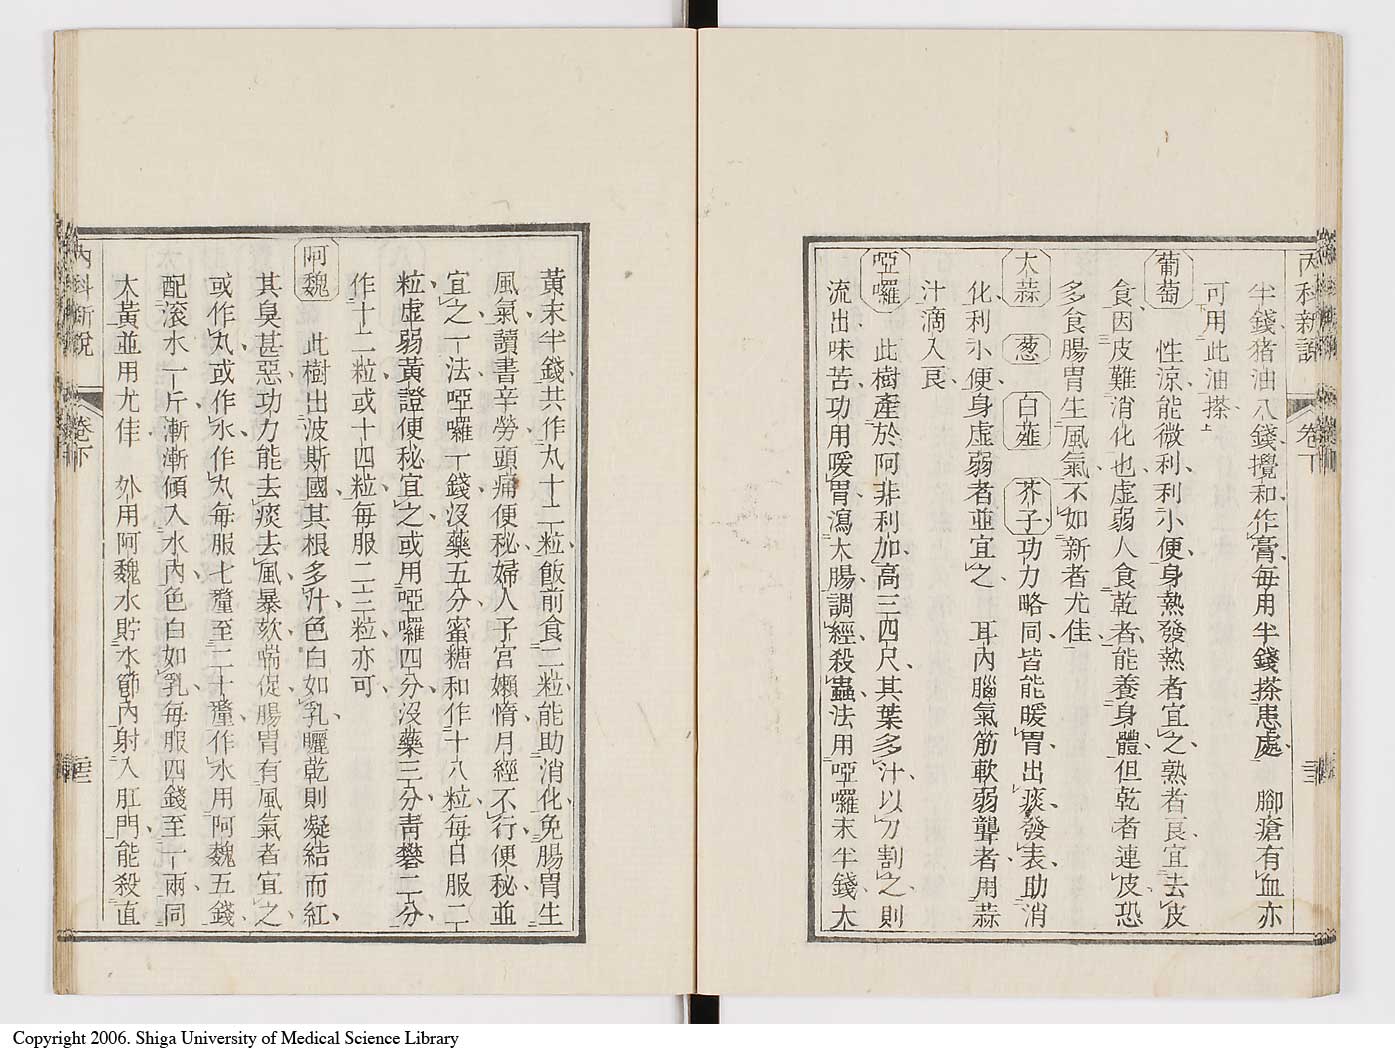 內科新說
卷下
半錢猪油八錢攪和作膏每用半錢搽患處　腳瘡有血亦
可用此油搽
葡萄　性涼能微利利小便身熱發熱者宜之熟者良宜去皮
食因皮難消化也虛弱人食乾者能養身體但乾者連皮恐
多食腸胃生風氣不如新者尤佳
大蒜　葱　白薤　芥子功力略同皆能暖胃出痰發表助消
化利小便身虛弱者並宜之　耳內腦氣筋軟弱聾者用蒜
汁滴入良
啞囉　此樹產於阿非利加高三四尺其葉多汁以刀割之則
流出味苦功用暖胃瀉大腸調經殺蟲法用啞囉末半錢大
黃末半錢共作丸十二粒飯前食二粒能助消化免腸胃生
風氣讀書辛勞頭痛便秘婦人子宮嬾惰月經不行便秘並
宜之一法啞囉一錢沒藥五分蜜糖和作十八粒每日服二
粒虛弱黃證便秘宜之或用啞囉四分沒藥三分青礬二分
作十二粒或十四粒每服二三粒亦可
阿魏　此樹出波斯國其根多汁色白如乳曬乾則凝結而紅
其臭甚惡功力能去痰去風暴欬喘促腸胃有風氣者宜之
或作丸或作水作丸每服七釐至二十釐作水用阿魏五錢
配滾水一斤漸漸傾入水內色白如乳每服四錢至一兩同
大黃並用尤佳　外用阿魏水貯水節內射入肛門能殺直
內科新說
卷下
Copyright 2006. Shiga University of Medical Science Library